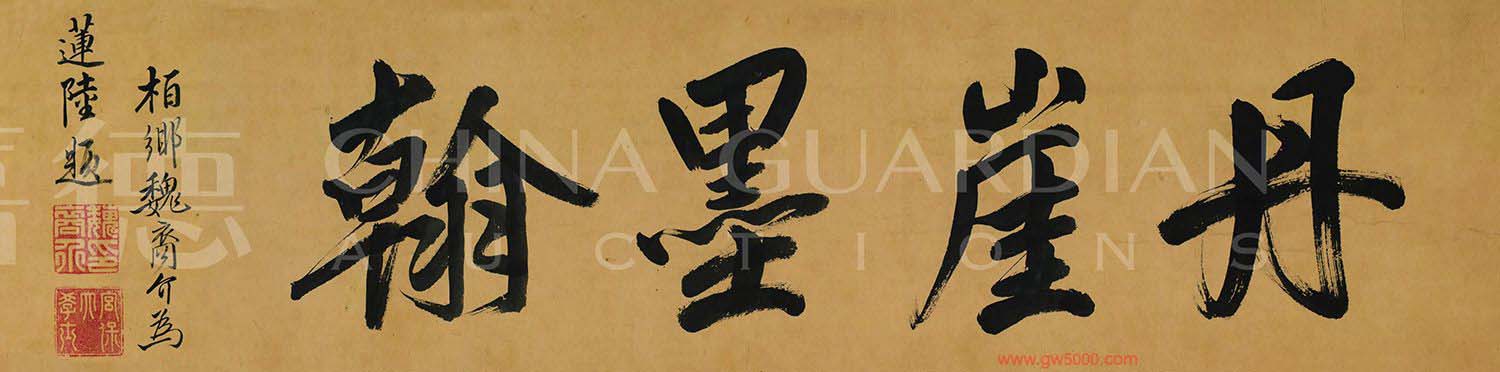 丹崖墨翰
柏鄉魏裔介為
蓮陸題
CHINA GUARDIAN
AUCTIONS
www.gw5000.com